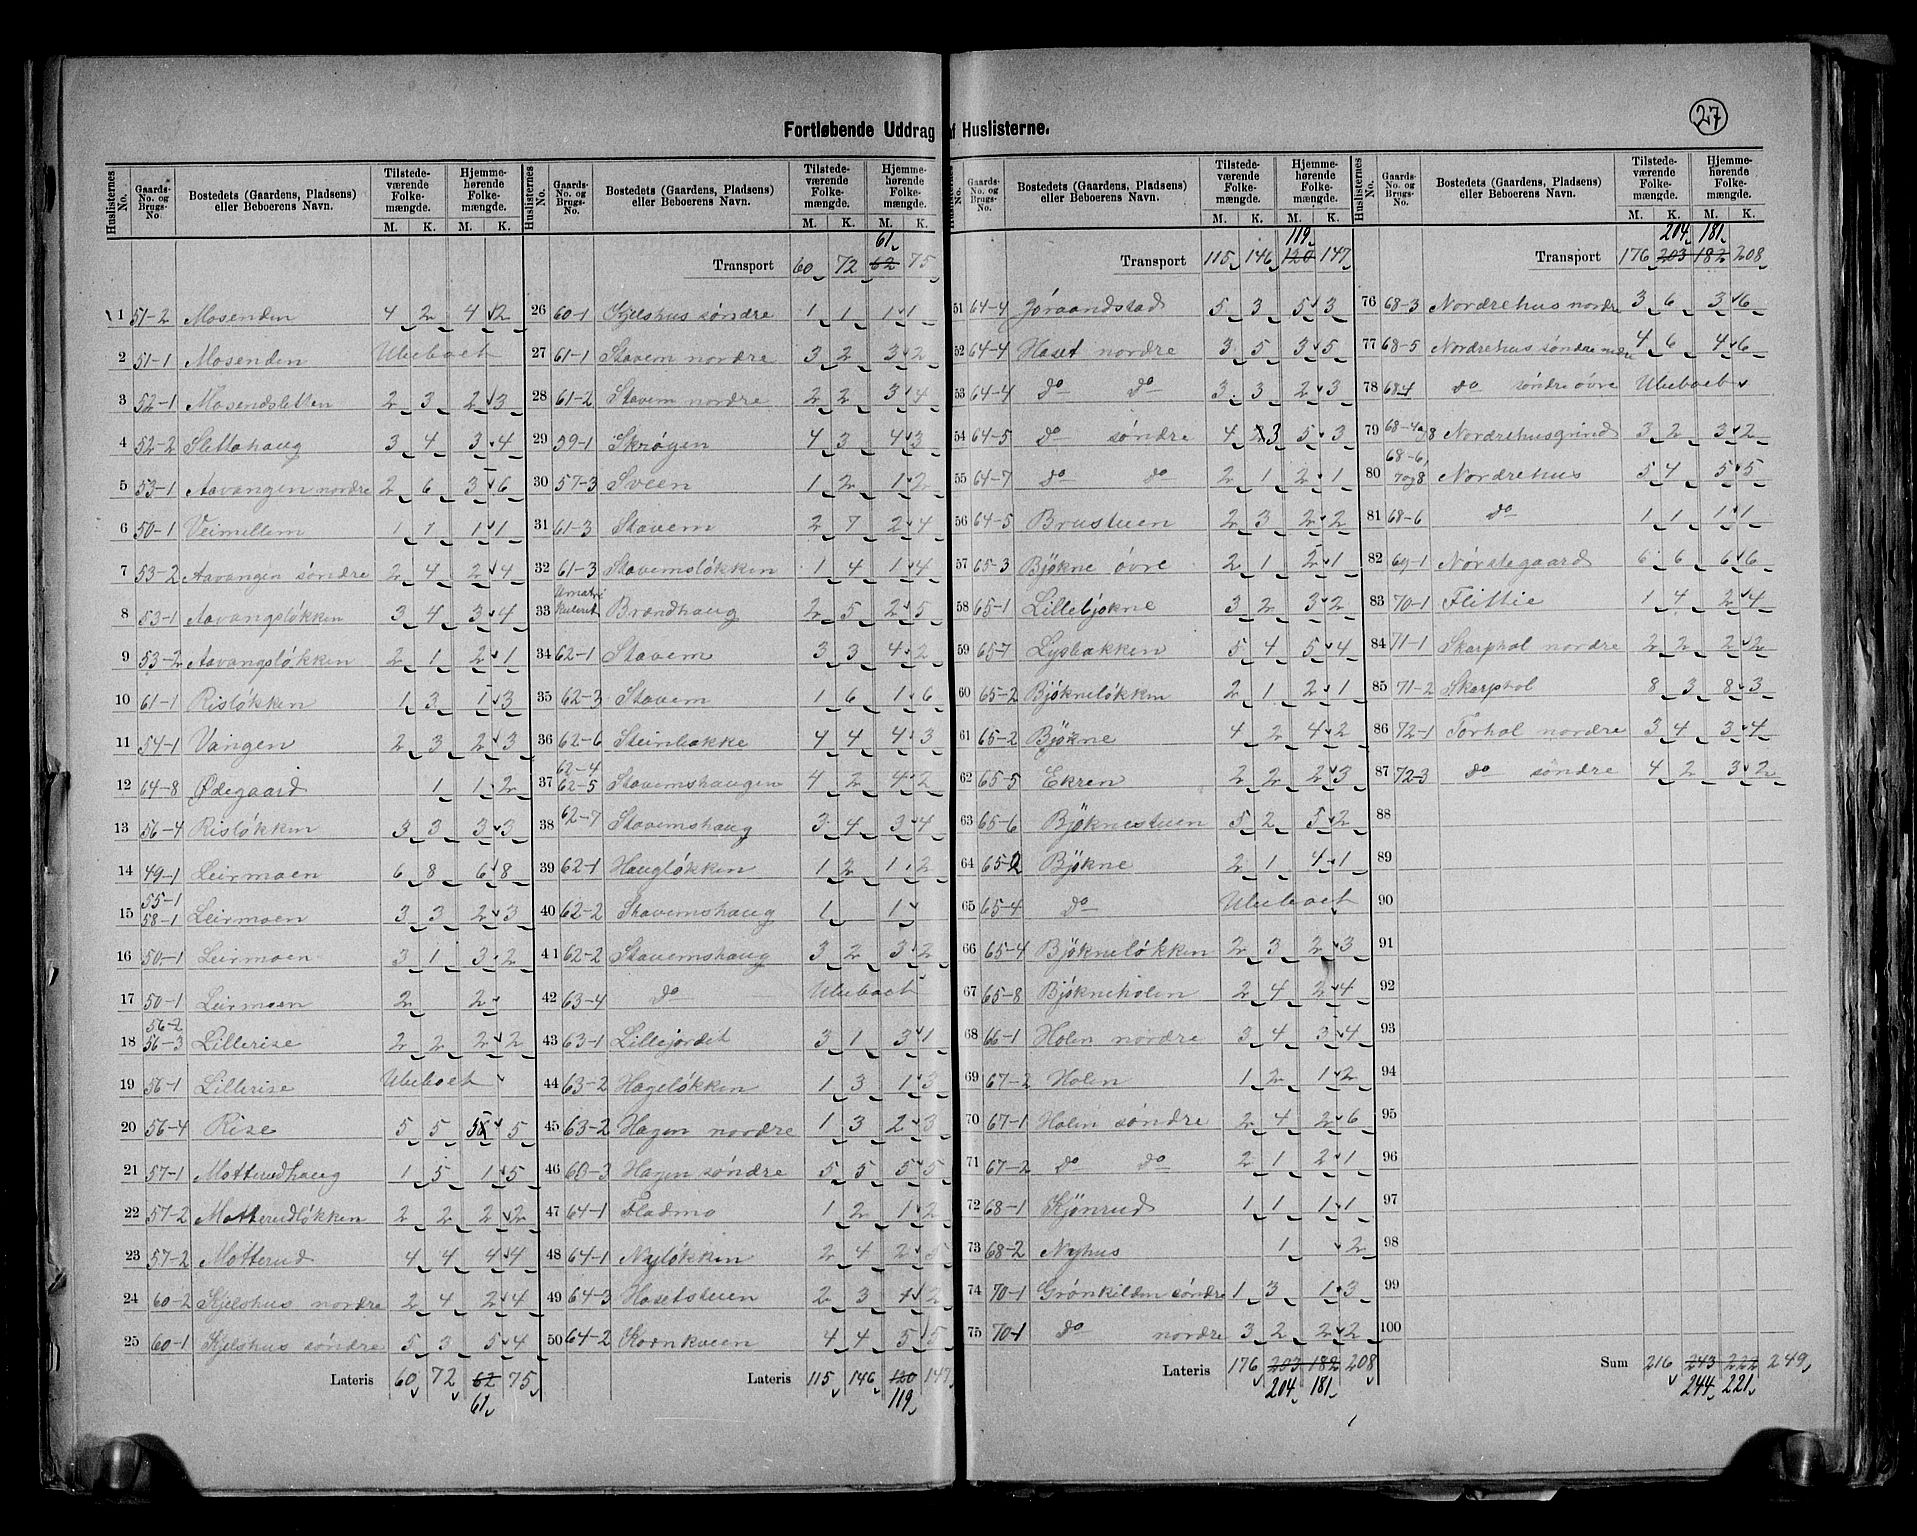 27
Fortløbende Uddrag af Huslisterne.
Huslisternes No. | Gaards-No. og Brugs-No. | Bostedets (Gaardens, Pladsens) eller Beboerens Navn. | Tilstedeværende Folkemængde. M. K. | Hjemmehørende Folkemængde. M. K.
1 51-2 Mosenden 4 2 4 2
2 51-1 Mosenden Ubeboet
3 52-1 Mosendsletten 2 3 2 3
4 52-2 Slettahaug 3 4 3 4
5 53-1 Aavangen nordre 2 6 3 6
6 50-1 Veimellem 1 1 1 1
7 53-2 Aavangen søndre 2 4 2 4
8 53-1 Aavangsløkken 3 4 3 4
9 53-2 Aavangsløkken 2 1 2 1
10 61-1 Risløkken 1 3 1 3
11 54-1 Vangen 2 3 2 3
12 64-8 Ødegaard 1 1 2
13 56-4 Risløkken 3 3 3 3
14 49-1 Leirmoen 6 8 6 8
15 55-1 58-1 Leirmoen 3 3 2 3
16 50-1 Leirmoen 3 1 3 2
17 50-1 Leirmoen 2 2
18 56-2 56-3 Lillerise 2 2 2 2
19 56-1 Lillerise Ubeboet
20 56-4 Rise 5 5 5 5
21 57-1 Motterudhaug 1 5 1 5
22 57-2 Motterudløkken 2 2 2 2
23 57-2 Motterud 4 4 4 4
24 60-2 Kjelshus nordre 2 4 2 4
25 60-1 Kjelshus søndre 5 3 5 4
Lateris 60 72 62 75
61
Huslisternes No. | Gaards-No. og Brugs-No. | Bostedets (Gaardens, Pladsens) eller Beboerens Navn. | Tilstedeværende Folkemængde. M. K. | Hjemmehørende Folkemængde. M. K.
61
Transport 60 72 62 75
26 60-1 Kjelshus søndre 1 1 1 1
27 61-1 Stavem nordre 3 2 3 2
28 61-2 Stavem nordre 2 2 3 4
29 59-1 Skrøgen 4 3 4 3
30 57-3 Sveen 1 2 1 2
31 61-3 Stavem 2 7 2 4
32 61-3 Stavemsløkken 1 4 1 4
33 Umatrikuleret Brændhaug 2 5 2 5
34 62-1 Stavem 3 3 4 2
35 62-3 Stavem 1 6 1 6
36 62-6 Steinbakke 4 4 4 3
37 62-4 62-5 Stavemshaugen 4 2 4 2
38 62-7 Stavemshaug 3 4 3 4
39 62-1 Haugløkken 1 2 1 2
40 62-2 Stavemshaug 1 1
41 62-2 Stavemshaug 3 2 3 2
42 63-4 do Ubeboet
43 63-1 Lillejordet 3 1 3 1
44 63-2 Hageløkken 1 3 1 3
45 63-2 Hagen nordre 1 3 2 3
46 63-3 Hagen søndre 5 5 5 5
47 64-1 Fladmo 1 2 1 2
48 64-1 Nyløkken 2 4 2 5
49 64-3 Hosetstuen 2 3 1 2
50 64-2 Kornkveen 4 4 5 5
Lateris 115 146 120 147
119
Huslisternes No. | Gaards-No. og Brugs-No. | Bostedets (Gaardens, Pladsens) eller Beboerens Navn. | Tilstedeværende Folkemængde. M. K. | Hjemmehørende Folkemængde. M. K.
119
Transport 115 146 120 147
51 64-4 Jøraandstad 5 3 5 3
52 64-4 Haset nordre 3 5 3 5
53 64-4 do do 3 3 2 3
54 64-5 do søndre 4 3 5 3
55 64-7 do do 2 1 2 1
56 64-5 Brustuen 2 3 2 2
57 65-3 Bjøkne øvre 2 1 2 1
58 65-1 Lillebjøkne 3 2 3 2
59 65-7 Lysbakken 5 4 5 4
60 65-2 Bjøkneløkken 2 1 2 1
61 65-2 Bjøkne 4 2 4 2
62 65-5 Ekren 2 2 2 3
63 65-6 Bjøknestuen 5 2 5 2
64 65-2 Bjøkne 2 1 4 1
65 65-4 do Ubeboet
66 65-4 Bjøkneløkken 2 3 2 3
67 65-8 Bjøkneholen 2 4 2 4
68 66-1 Holen nordre 3 4 3 4
69 67-2 Holen 1 2 1 2
70 67-1 Holen søndre 2 4 2 6
71 67-2 do do 2 1 2 1
72 68-1 Kjønrud 1 1 1 1
73 68-2 Nyhus 1 2
74 70-1 Grønkilden søndre 1 3 1 3
75 70-1 do nordre 3 2 2 2
Lateris 176 203 182 208
204 181
Huslisternes No. | Gaards-No. og Brugs-No. | Bostedets (Gaardens, Pladsens) eller Beboerens Navn. | Tilstedeværende Folkemængde. M. K. | Hjemmehørende Folkemængde. M. K.
204 181
Transport 176 203 182 208
76 68-3 Nordrehus nordre 3 6 3 6
77 68-5 Nordrehus søndre nedre 4 6 4 6
78 68-4 do søndre øvre Ubeboet
79 68-4 og 8 Nordrehusgrind 3 2 3 2
80 68-6, 7 og 8 Nordrehus 5 4 5 5
81 68-6 do 1 1 1 1
82 69-1 Nørstegaard 6 6 6 6
83 70-1 Flittie 1 4 2 4
84 71-1 Skarphol nordre 2 2 2 2
85 71-2 Skarphol 8 3 8 3
86 72-1 Torhol nordre 3 4 3 4
87 72-3 do søndre 4 2 3 2
88
89
90
91
92
93
94
95
96
97
98
99
100
Sum 216 243 222 249
244 221